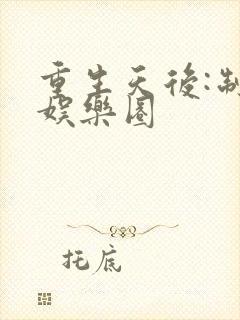 重生天後:制
娛樂圈
托底